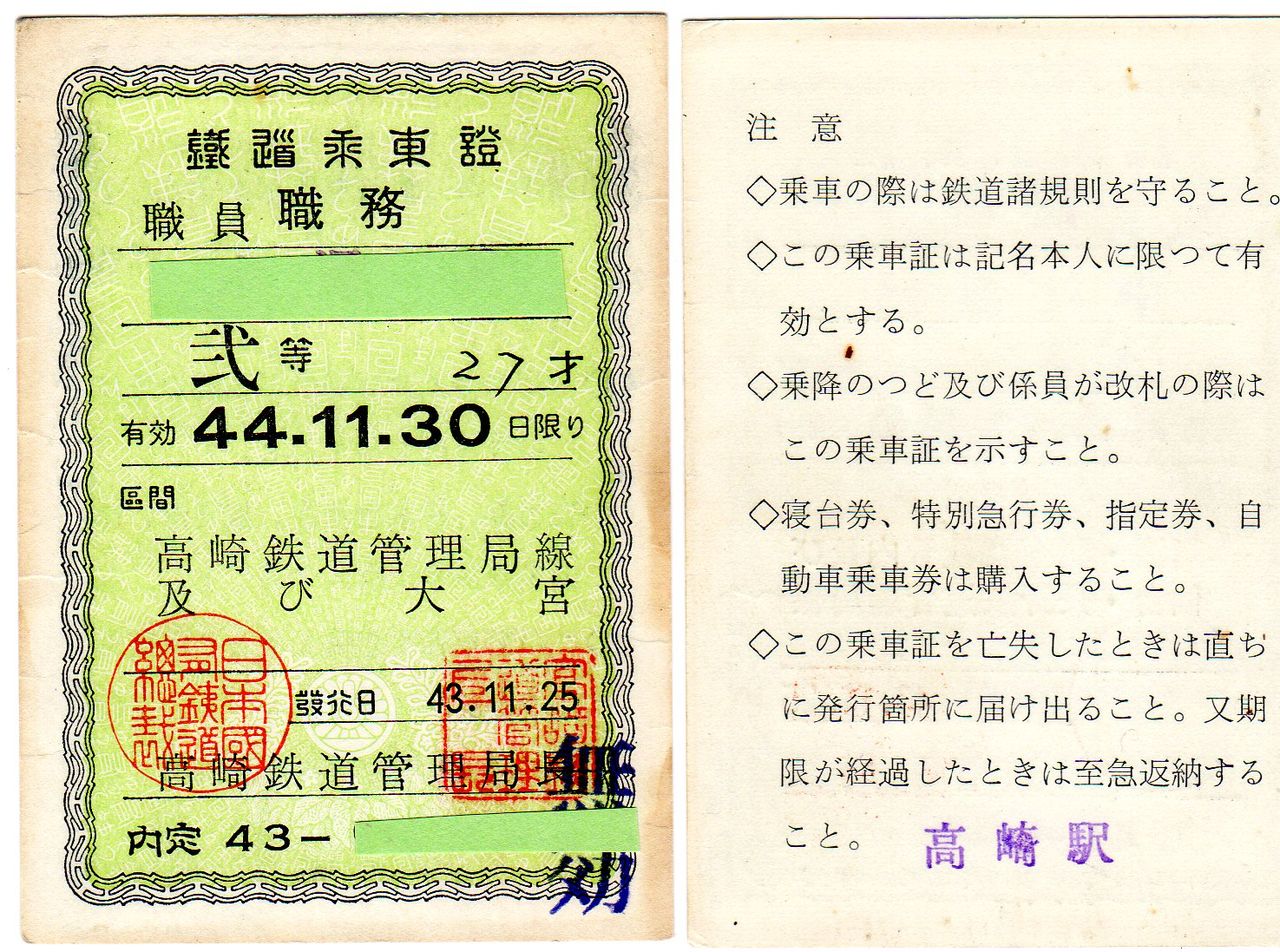 鐵道乘車證
職員 職務
弐等 27才
有効 44.11.30 日限り
區間
高崎鉄道管理局線
及び大宮
日本國
有鉄道
總裁
發行日 43.11.25
高崎鉄道管理局長
無効
内定 43－
注意
◇乗車の際は鉄道諸規則を守ること。
◇この乗車証は記名本人に限つて有
効とする。
◇乗降のつど及び係員が改札の際は
この乗車証を示すこと。
◇寝台券、特別急行券、指定券、自
動車乗車券は購入すること。
◇この乗車証を亡失したときは直ち
に発行箇所に届け出ること。又期
限が経過したときは至急返納する
こと。
高崎駅